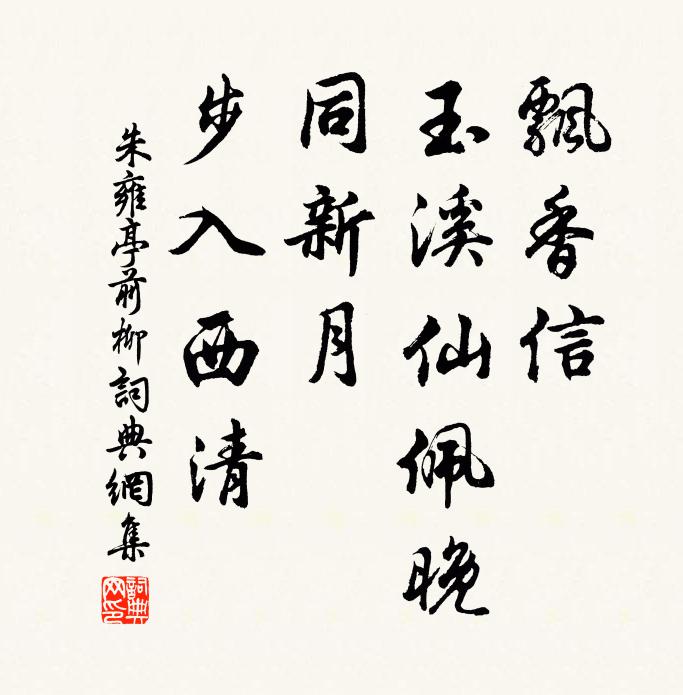 飄香信
玉溪仙佩晚
同新月
步入西清
朱雍亭前柳詞典網集
詞典網印